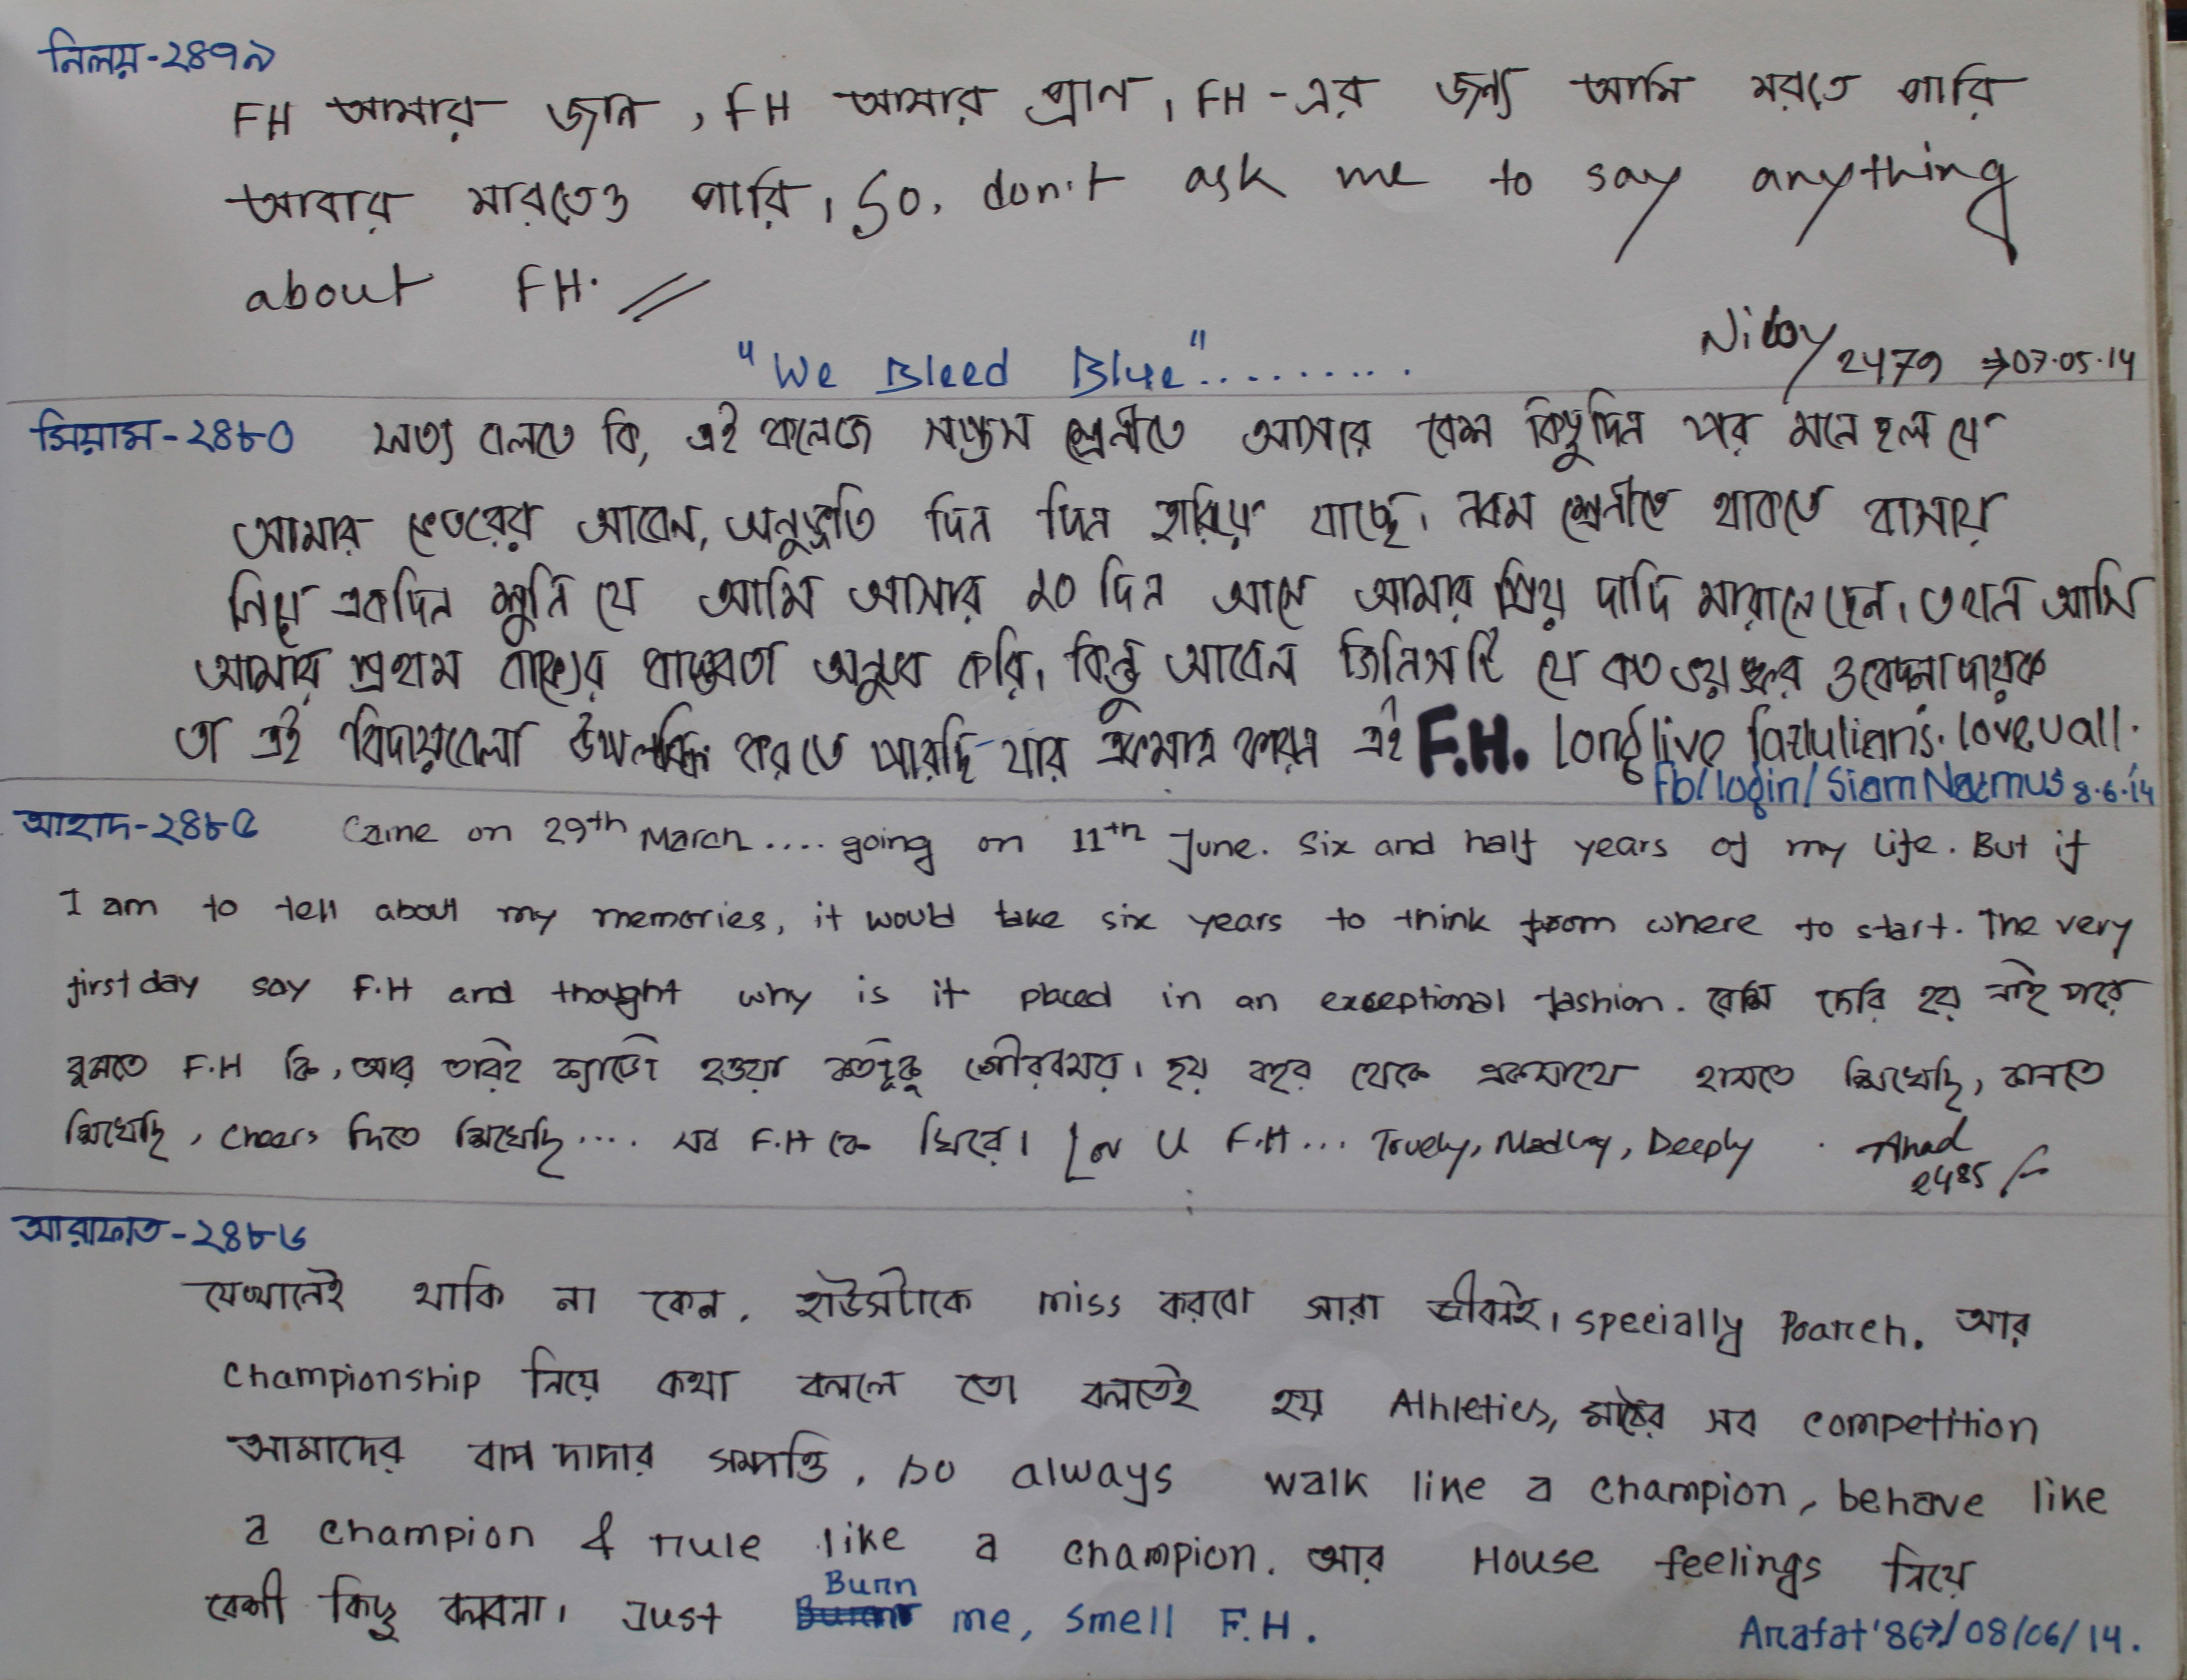 নিলয়-২৪৭৯
FH আমার জান, FH আমার প্রাণ, FH-এর জন্য আমি মরতে পারি
আবার মারতেও পারি, So, don't ask me to say anything
about FH.
Niloy/2479 →07.05.14
"We Bleed Blue".........
সিয়াম-২৪৮০ সত্য বলতে কি, এই কলেজে সপ্তম শ্রেনীতে আসার বেশ কিছুদিন পর মনে হল যে
আমার ভেতরের আবেগ, অনুভূতি দিন দিন হারিয়ে যাচ্ছে। নবম শ্রেনীতে থাকতে বাসায়
গিয়ে একদিন শুনি যে আমি আসার ১০ দিন আগে আমার প্রিয় দাদি মারা গেছেন। তখন আমি
আমার প্রথম বাক্যের বাস্তবতা অনুভব করি। কিন্তু আবেগ জিনিসটি যে কত ভয়ঙ্কর ও বেদনাদায়ক
তা এই বিদায়বেলা উপলব্ধি করতে পারছি-যার একমাত্র কারণ এই F.H. long live fazlulians. love u all.
Fb/login/Siam Nazmus 8.6.14
আহাদ-২৪৮৫ Came on 29th March.... going on 11th June. Six and half years of my life. But if
I am to tell about my memories, it would take six years to think from where to start. The very
first day say F.H and thought why is it placed in an exceptional fashion. বেশি দেরি হয় নাই পরে
বুঝতে F.H কি, আর তারই ক্যাডেট হওয়া কতটুকু গৌরবময়। ছয় বছর থেকে একসাথে হাসতে শিখেছি, কানতে
শিখেছি, cheers দিতে শিখেছি.... সব F.H কে ঘিরে। Lov U F.H... Truely, Madly, Deeply. Ahad
2485
আরাফাত-২৪৮৬
যেখানেই থাকি না কেন, হাউসটাকে miss করবো সারা জীবনই। specially Poarch. আর
championship নিয়ে কথা বললে তো বলতেই হয় Athletics, মাঠের সব competition
আমাদের বাপ দাদার সম্পত্তি, so always walk like a champion, behave like
a champion & rule like a champion. আর House feelings নিয়ে
বেশী কিছু বলবনা। Just Burn me, smell F.H.
Arafat '86→/08/06/14.